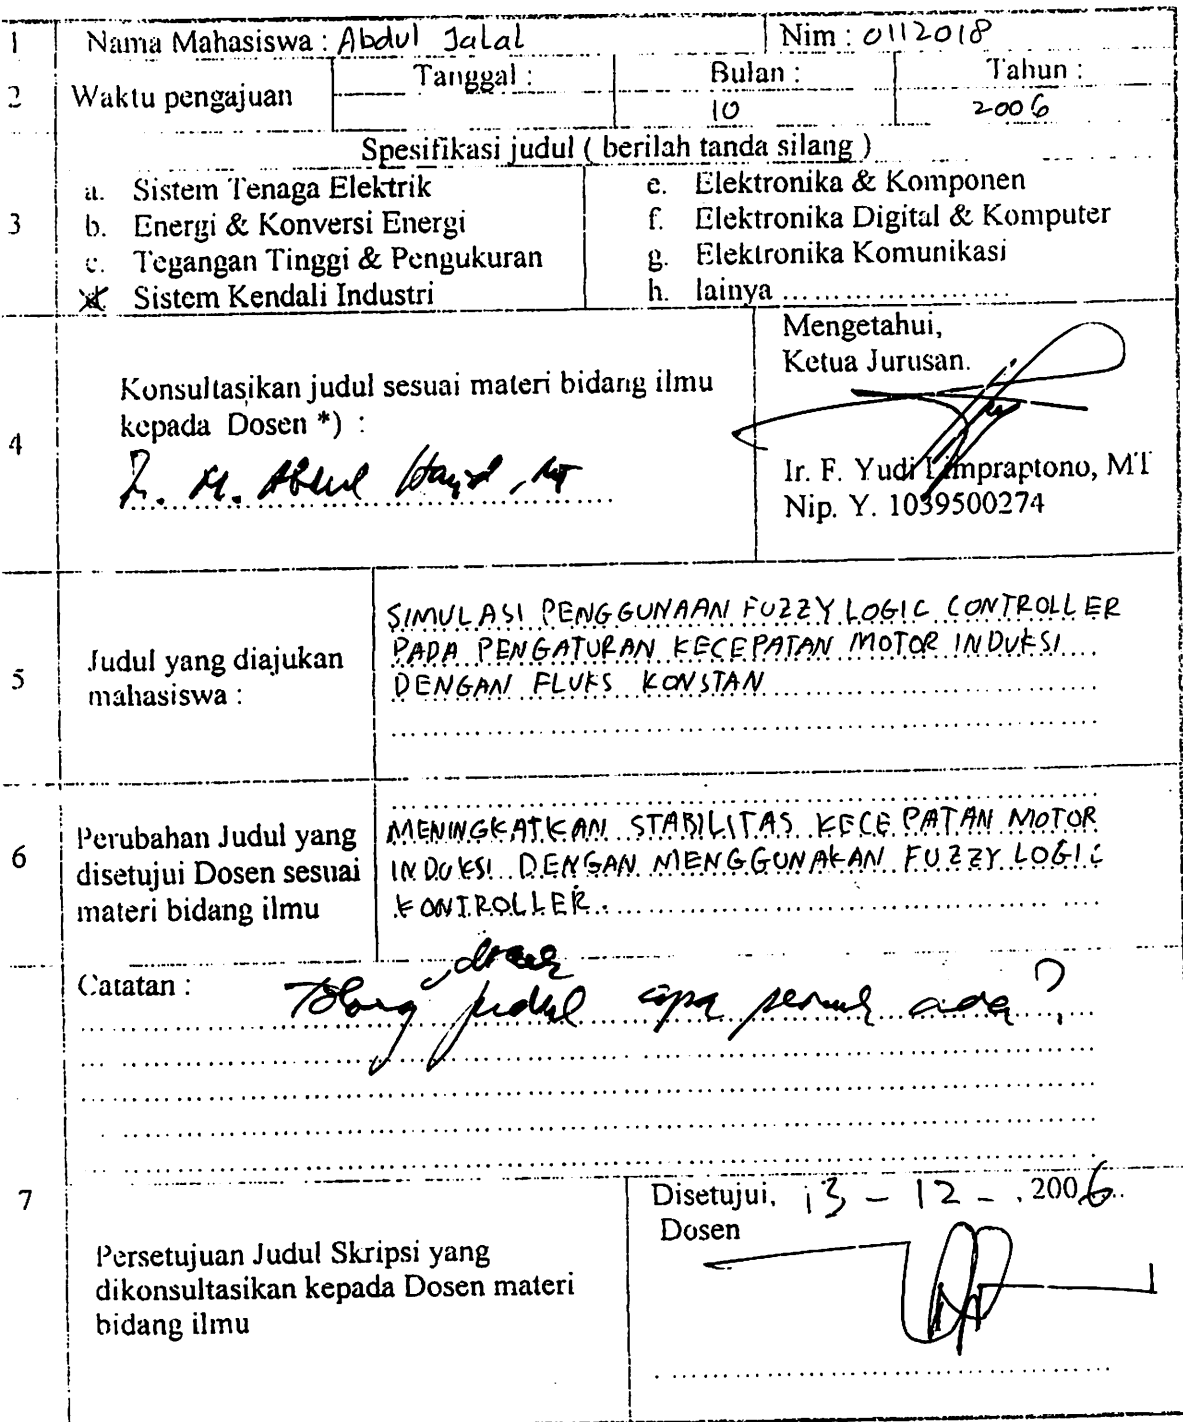 1 Nama Mahasiswa : Abdul Jalal Nim : 0112018
2 Waktu pengajuan Tanggal : Bulan : Tahun :
10 2006
Spesifikasi judul ( berilah tanda silang )
3
a. Sistem Tenaga Elektrik
b. Energi & Konversi Energi
c. Tegangan Tinggi & Pengukuran
Sistem Kendali Industri
e. Elektronika & Komponen
f. Elektronika Digital & Komputer
g. Elektronika Komunikasi
h. lainya ......................
4
Konsultasikan judul sesuai materi bidang ilmu
kepada Dosen *) :
Ir. M. Abdul Hamid, MT
Mengetahui,
Ketua Jurusan.
Ir. F. Yudi Limpraptono, MT
Nip. Y. 1039500274
5
Judul yang diajukan
mahasiswa :
SIMULASI PENGGUNAAN FUZZY LOGIC CONTROLLER
PADA PENGATURAN KECEPATAN MOTOR INDUKSI
DENGAN FLUKS KONSTAN
6
Perubahan Judul yang
disetujui Dosen sesuai
materi bidang ilmu
MENINGKATKAN STABILITAS KECEPATAN MOTOR
INDUKSI DENGAN MENGGUNAKAN FUZZY LOGIC
KONTROLLER.
Catatan :
Tolong judul apa pernah ada?
7
Persetujuan Judul Skripsi yang
dikonsultasikan kepada Dosen materi
bidang ilmu
Disetujui, 13 - 12 - 2006
Dosen